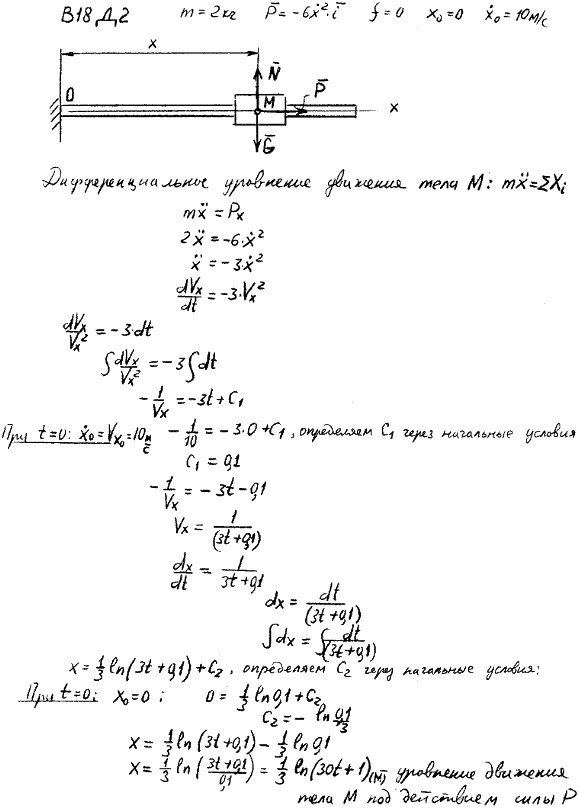 В18 Д.2 m=2кг P̄=-6ẋ²·ī f=0 x₀=0 ẋ₀=10м/с
x
N̄
O M P̄ x
Ḡ
Дифференциальное уровнение движения тела М: mẍ=ΣXᵢ
mẍ=Pₓ
2ẍ=-6·ẋ²
ẍ=-3·ẋ²
dVₓ/dt=-3·Vₓ²
dVₓ/Vₓ²=-3·dt
∫dVₓ/Vₓ²=-3∫dt
-1/Vₓ=-3t+C₁
При t=0: ẋ₀=Vₓ₀=10м/с -1/10=-3·0+C₁, определяем C₁ через начальные условия
C₁=0,1
-1/Vₓ=-3t-0,1
Vₓ=1/(3t+0,1)
dx/dt=1/3t+0,1
dx=dt/(3t+0,1)
∫dx=∫dt/(3t+0,1)
x=1/3 ln(3t+0,1)+C₂, определяем C₂ через начальные условия:
При t=0: x₀=0; 0=1/3 ln0,1+C₂
C₂=-ln0,1/3
x=1/3 ln(3t+0,1)-1/3 ln0,1
x=1/3 ln(3t+0,1/0,1)=1/3 ln(30t+1)(м) уровнение движения
тела М под действием силы Р